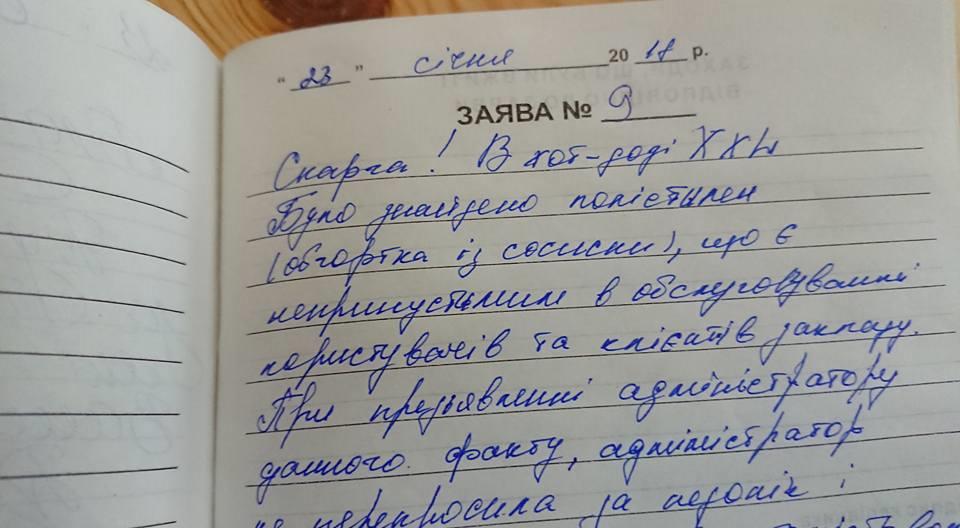 " 23 " січня 20 18 р.
ЗАЯВА № 9
Скарга! В хот-доді XXL
Було знайдено поліетилен
(обгортка із сосиски), що є
неприпустимим в обслуговуванні
користувачів та клієнтів закладу.
При предьявленні адміністратору
данного факту, адміністратор
не перепросила за недолік і